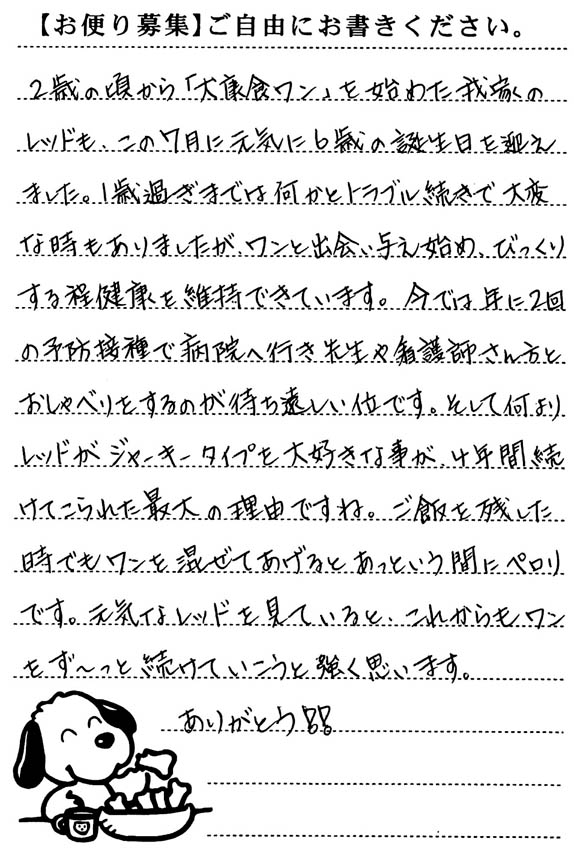 【お便り募集】ご自由にお書きください。
2歳の頃から「大康食ワン」を始めた我家の
レッドも、この7月に元気に6歳の誕生日を迎え
ました。1歳過ぎまでは何かとトラブル続きで大変
な時もありましたが、ワンと出会い与え始め、びっくり
する程健康を維持できています。今では年に2回
の予防接種で病院へ行き先生や看護師さん方と
おしゃべりをするのが待ち遠しい位です。そして何より
レッドがジャーキータイプを大好きな事が、4年間続
けてこられた最大の理由ですね。ご飯を残した
時でもワンを混ぜてあげるとあっという間にペロリ
です。元気なレッドを見ていると、これからもワン
をず〜っと続けていこうと強く思います。
ありがとう!!